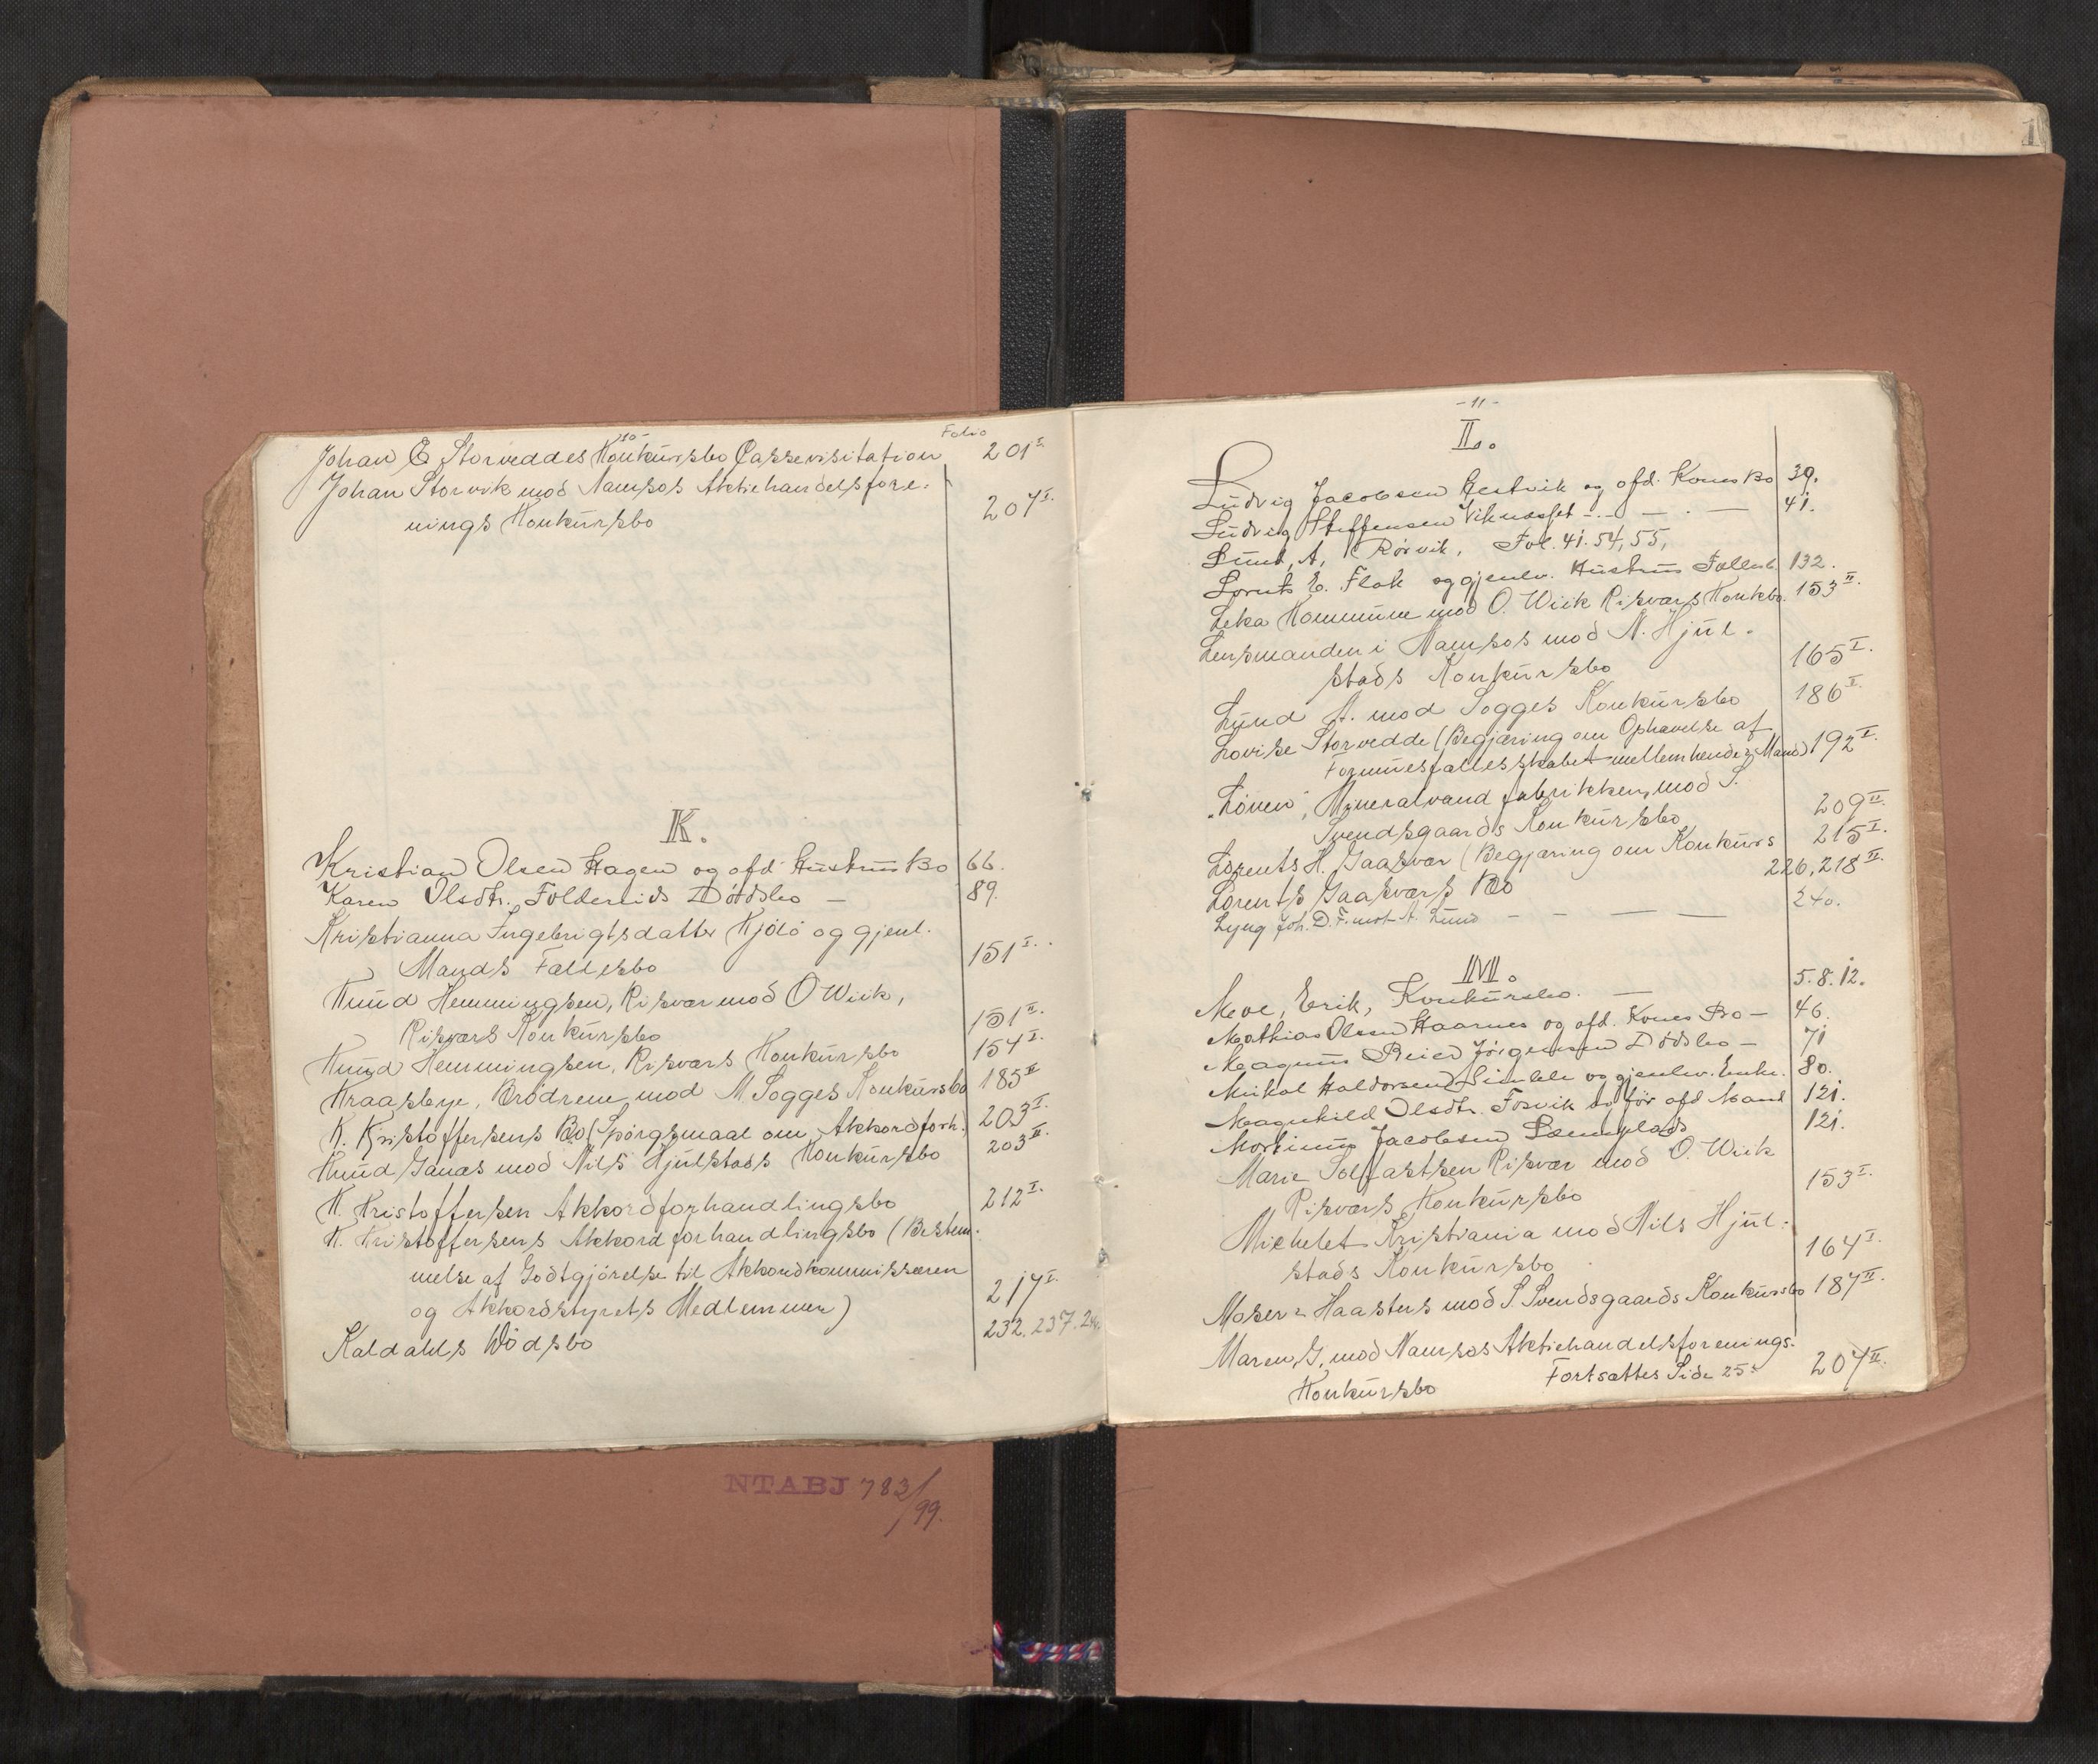 -10-
Folio
Johan E Storveddes Konkursbo Cassevisitation 201 I.
Johan Storvik mod Namsos Aktiehandelsfore-
nings Konkursbo 207 I.
K.
Kristian Olsen Hagen og afd Hustrus Bo 66.
Karen Olsdtr. Foldereids Dødsbo - 89.
Kristianna Ingebrigtsdatter Kjölö og gjenl.
Mands Fællesbo 151 I.
Knud Hemmingsen, Risvær mod O Wiik,
Risværs Konkursbo 151 II.
Knud Hemmingsen, Risværs Konkursbo 154 I.
Kraasbye, Brödrene, mod M. Sogges Konkursbo 185 II
K. Kristoffersens Bo (Spörgsmaal om Akkordforh.) 203 I.
Knud Ganæs mod Nils Hjulstads Konkursbo 203 II.
K. Kristoffersen Akkordforhandlingsbo 212 I.
K. Kristoffersens Akkordforhandlingsbo (Bestem-
melse af Godtgjörelse til Akkordkommissæren
og Akkordstyrets Medlemmer) 217 I.
Kaldahls Dödsbo 232. 237.
NTABJ 783/99.
-11-
L.
Ludvig Jacobsen Gestvik og afd. Kones Bo 39.
Ludvig Steffensen Viknæsset - - - 41.
Lund, A, Rørvik, Fol. 41. 54, 55,
Lornts E. Flak og gjenlv. Hustrus Fællesb 132.
Leka Kommune mod O. Wiik Risværs Konkbo. 153 II.
Lensmanden i Namsos mod N. Hjul-
stads Konkursbo 165 I.
Lund A. mod Sogges Konkursbo 186 I.
Lovise Storvedde (Begjæring om Ophævelse af
Formuesfællesskabet mellem hende & Mand) 192 I.
"Löven", Mineralvandfabrikken, mod S.
Svendsgaards Konkursbo 209 II.
Lorents H. Gaasvær (Begjæring om Konkurs 215 I.
Lorents Gaasværs Bo 226, 218 II.
Lyng Joh. D. F. mot A. Lund - - - - 240.
M.
Moe, Erik, Konkursbo. - 5. 8. 12.
Mathias Olsen Haarnes og afd. Kones Bo - 46.
Magnus Peier Jörgensen Dödsbo - 71
Mikal Haldorsen Simle og gjenlev. Enke. 80.
Magnhild Olsdtr. Fosvik bo før afd Mand 121.
Mortinus Jacobsen Lemplads 121.
Marie Solfastsen Risvær mod O. Wiik
Risværs Konkursbo 153 I.
Michelet Kristiania mod Nils Hjul-
stads Konkursbo 164 I.
Moser & Haasters mod S. Svendsgaards Konkursbo 187 II.
Maren, G, mod Namsos Aktiehandelsforenings-
Konkursbo 207 II.
Fortsættes Side 25.